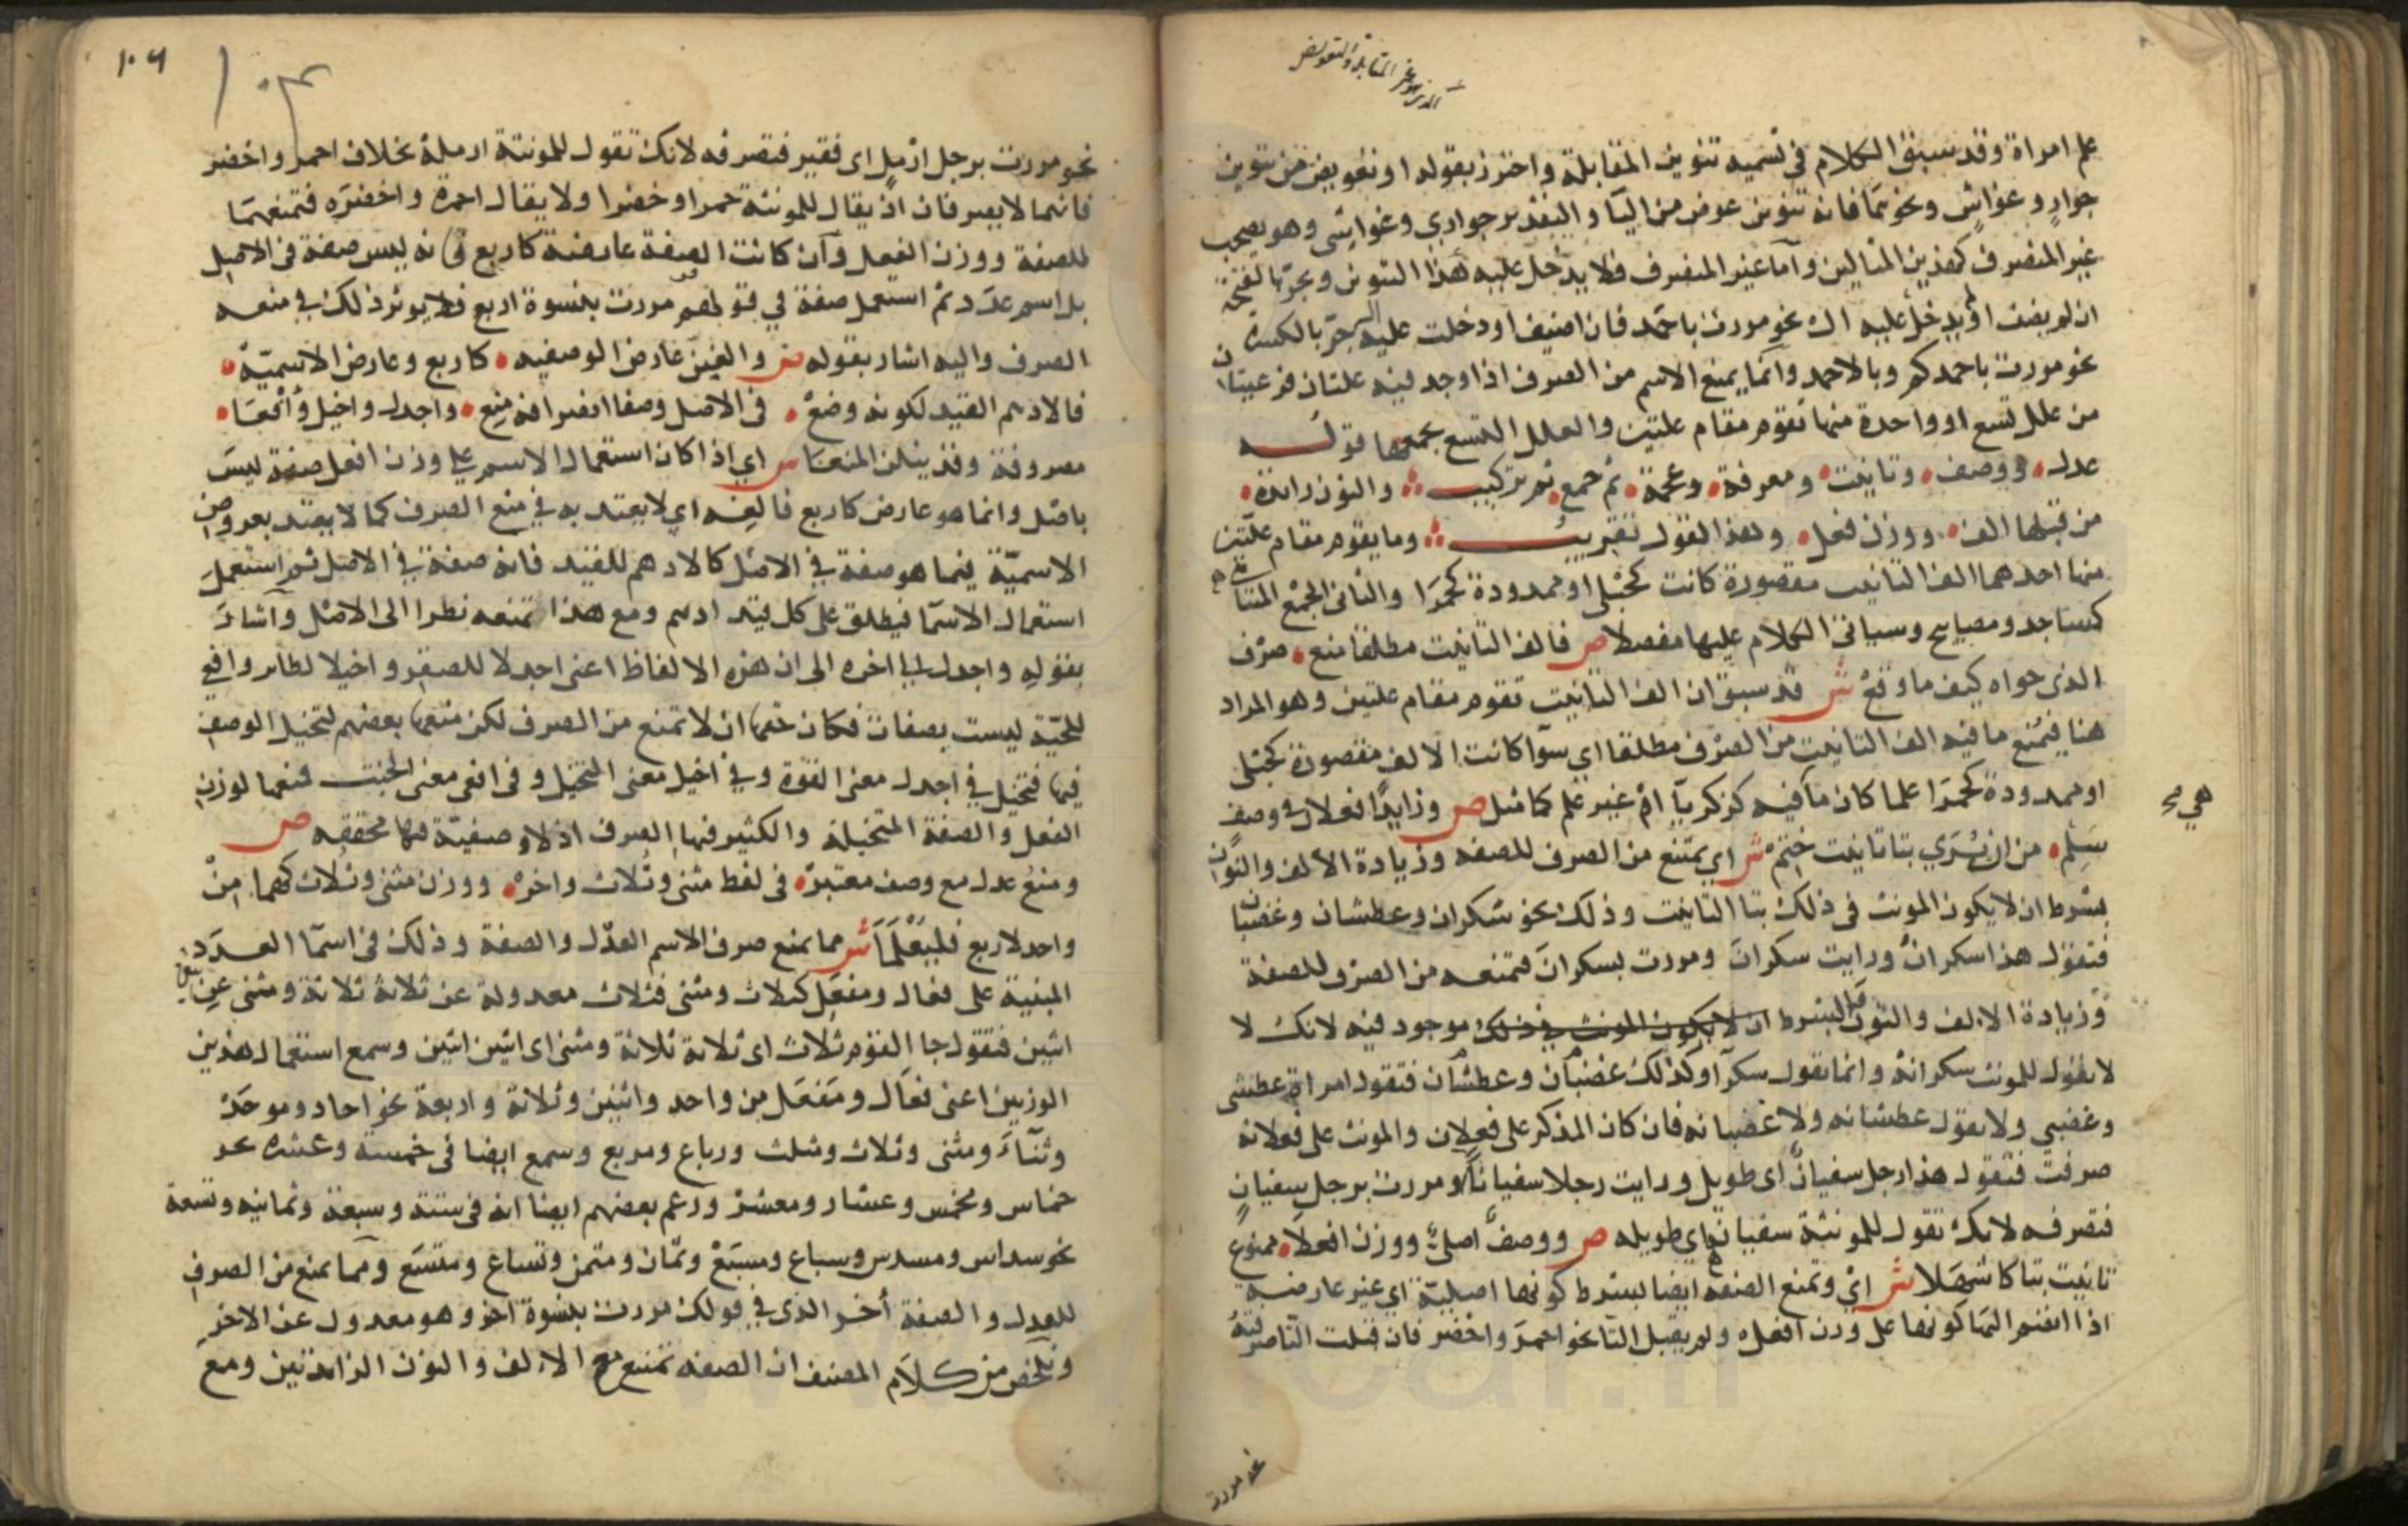 الذي هو غير المقابلة والتعويض
علم امراة وقد سبق الكلام في تسميه تنوين المقابلة واحترز بقوله او تعويض من تنوين
جوارٍ وغواشٍ ونحوهما فانه تنوين عوض من اليآ والتقدير جواري وغواشي وهو يصحب
غير المنصرف كهذين المثالين وآما غير المنصرف فلا يدخل عليه هذا التنوين ويجر بالفتحة
ان لم يضف او لم يدخل عليه ال نحو مررت باحمد فان اضيف او دخلت عليه ال جر بالكسرة
نحو مررت باحمدكم وبالاحمد وانما يمنع الاسم من الصرف اذا وجد فيه علتان فرعيتان
من علل تسع او واحدة منها تقوم مقام علتين والعلل التسع يجمعها قوله
عدل ووصف وتانيث ومعرفة وعجمة ثم جمع ثم تركيب والنون زائدة
من قبلها الف ووزن فعل وهذا القول تقريب وما يقوم مقام علتين
منها احدهما الف التانيث مقصورة كانت كحبلى او ممدودة كحمرا والثاني الجمع المتناهي
كمساجد ومصابيح وسياتي الكلام عليها مفصلا ص فالف التانيث مطلقا منع صرف
الذي حواه كيف ما وقع ش قد سبق ان الف التانيث تقوم مقام علتين وهو المراد
هنا فيمنع ما فيه الف التانيث من الصرف مطلقا اي سوآ كانت الالف مقصورة كحبلى
او ممدودة كحمرا علما كان ما هي فيه كزكريآ ام غير علم كما مثل ص وزايدا فعلان في وصف
سلم من ان يرى بتا تانيث ختم ش اي يمتنع من الصرف للصفه وزيادة الالف والنون
بشرط ان لا يكون المونث في ذلك بتا التانيث وذلك نحو سكران وعطشان وغضبان
فتقول هذا سكرانُ ورايت سكرانَ ومررت بسكرانَ فتمنعه من الصرف للصفة
وزيادة الالف والنون والشرط ان لا يكون المونث في ذلك موجود فيه لانك لا
لا تقول للمونث سكرانة وانما تقول سكرآ وكذلك غضبان وعطشان فتقول امراة عطشى
وغضبي ولا تقول عطشانه ولا غضبانه فان كان المذكر على فعلان والمونث على فعلانه
صرفت فتقول هذا رجل سفيانٌ اي طويل ورايت رجلا سفياناً ومررت برجل سفيانٍ
فتصرفه لانك تقول للمونثة سفيانة اي طويله ص ووصف اصليّ ووزن افعلا ممنوع
تانيث بتا كاشهلا ش اي وتمنع الصفة ايضا بشرط كونها اصلية اي غير عارضة
اذا انضم اليها كونها على وزن افعل ولم يقبل التآ نحو احمر واخضر فان قبلت التآ صرفت
نحو مررت
١٠٦
١٠٣
نحو مررت برجل ارملٍ اي فقير فتصرفه لانك تقول للمونثة ارملة بخلاف احمر واخضر
فانهما لا يصرفان اذ يقال للمونثة حمرا وخضرا ولا يقال احمرة واخضره فتمنعهما
للصفة ووزن الفعل وآن كانت الصفة عارضة كاربع فانه ليس صفة في الاصل
بل اسم عدد ثم استعمل صفة في قولهم مررت بنسوة اربع فلا يوثر ذلك في منعه
الصرف واليه اشار بقوله ص والغينّ عارض الوصفيه كاربع وعارض الاسميّة
فالادهم القيد لكونه وضع في الاصل وصفا انصرافه منع واجدل واخيل وافعا
مصروفة وقد ينلن المنعا ش اي اذا كان استعمال الاسم على وزن افعل صفة ليس
باصل وانما هو عارض كاربع فالغه اي لا يعتد به في منع الصرف كما لا يعتد بعروض
الاسميّة فيما هو صفة في الاصل كالادهم للقيد فانه صفة في الاصل ثم استعمل
استعمال الاسمآ فيطلق على كل قيد ادهم ومع هذا تمنعه نظرا الى الاصل وآشار
بقوله واجدل الى اخره الى ان هذه الالفاظ اعني اجدلا للصقر واخيلا لطاير وافعى
للحيّة ليست بصفات فكان حقها ان لا تمنع من الصرف لكن منعها بعضهم لتخيل الوصف
فيها فتخيل في اجدل معنى القوة وفي اخيل معنى التخيل وفي افعى معنى الخبث فمنعها لوزن
الفعل والصفة المتخيلة والكثير فيها الصرف اذ لا وصفيّة فيها محققه ص
ومنع عدل مع وصف معتبره في لفظ مثنى وثلاث واخره ووزن مثنى وثلاث كهما من
واحد لاربع فليُعْلَمَا ش مما يمنع صرف الاسم العدْل والصفة وذلك في اسمآ العدد
المبنية على فعال ومفعل كثلاث ومثنى فثلاث معدولة عن ثلاثة ثلاثة ومثنى عن اثنين
اثنين فتقول جا القوم ثلاث اي ثلاثة ثلاثة ومثنى اي اثنين اثنين وسمع استعمال هذين
الوزنين اعني فعال ومفعل من واحد واثنين وثلاثة واربعة نحو احاد وموحد
وثنآء ومثنى وثلاث ومثلث ورباع ومربع وسمع ايضا في خمسة وعشره نحو
خماس ومخمس وعشار ومعشر وزعم بعضهم ايضا انه في ستة وسبعة وثمانيه وتسعة
نحو سداس ومسدس وسباع ومسبع وثمان ومثمن وتساع ومتسع ومما يمنع من الصرف
للعدل والصفة أخر الذي في قولك مررت بنسوة اخر وهو معدول عن الاخر
وتلخص من كلام المصنف ان الصفه تمتنع مع الالف والنون الزائدتين ومع